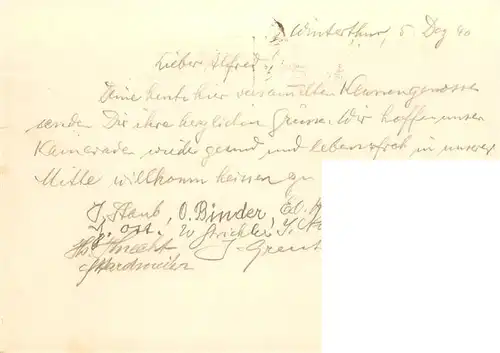 Winterthur, 5 Dez 40
Lieber Alfred!
Deine heute hier versammelten Klassengenossen
senden Dir ihre herzlichen Grüsse. Wir hoffen unsern
Kameraden wieder gesund und lebensfroh in unserer
Mitte willkomm heissen zu
J. Staub, O. Binder, Ed.
Ost. W. Strickler, J.
Hs. Knecht J. Greut
Hardmeier